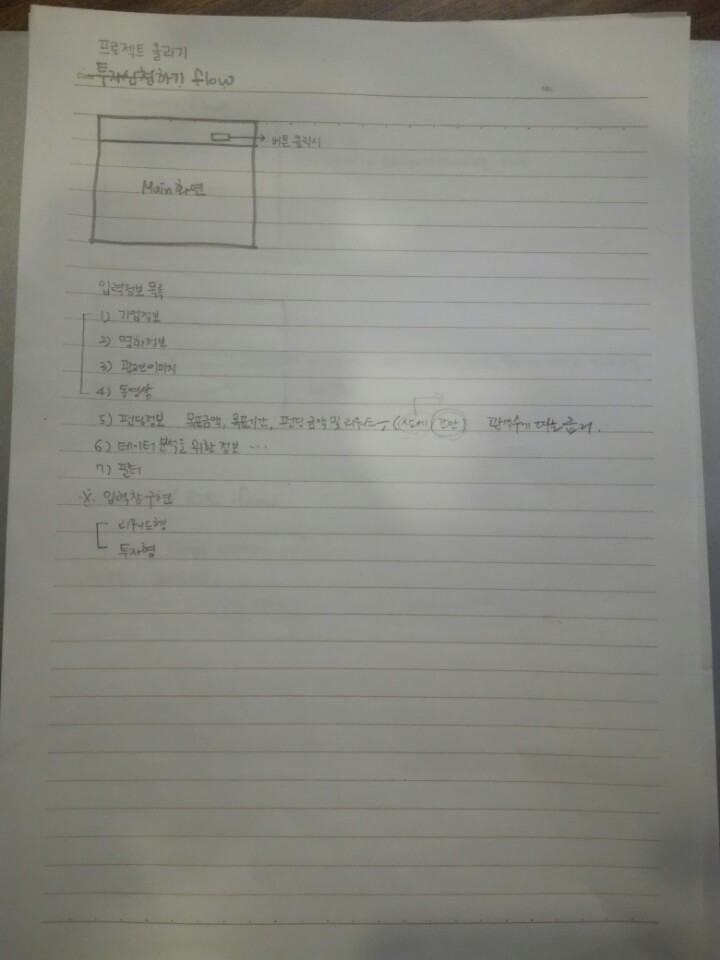 프로젝트 올리기
투자신청하기 flow
버튼 클릭시
Main 화면
입력정보 목록
1) 기업정보
2) 영화정보
3) 관련이미지
4) 동영상
5) 펀딩정보 목표금액, 목표기간, 펀딩 금액 및 리워드 (상세 간단)
6) 데이터 분석을 위한 정보 ...
7) 필터
※. 입력창 구현
리워드형
투자형